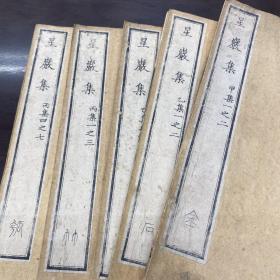 星巖集 甲集一之二
金
星巖集 乙集一之二
石
星巖集
星巖集 丙集一之三
竹
星巖集 丙集四之七